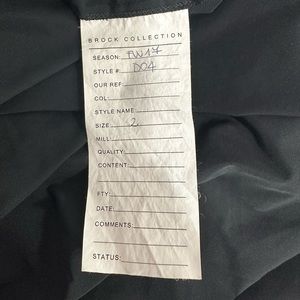 BROCK COLLECTION
SEASON: FW17
STYLE #: D04
OUR REF:
COL:
STYLE NAME:
SIZE: 2
MILL:
QUALITY:
CONTENT:
FTY:
DATE:
COMMENTS:
STATUS: